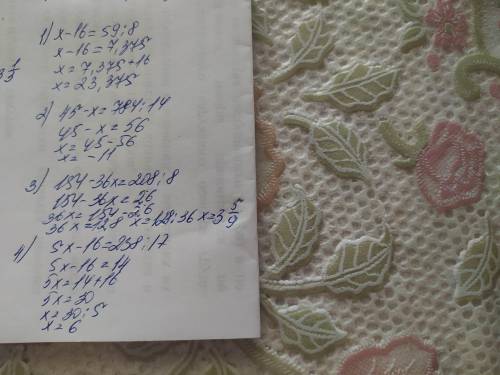 1) x-16=59:8
x-16=7,375
x=7,375+16
x=23,375
2) 45-x=784:14
45-x=56
x=45-56
x=-11
3) 154-36x=208:8
154-36x=26
36x=154-26
36x=128 x=128:36 x=3 5/9
4) 5x-16=238:17
5x-16=14
5x=14+16
5x=30
x=30:5
x=6